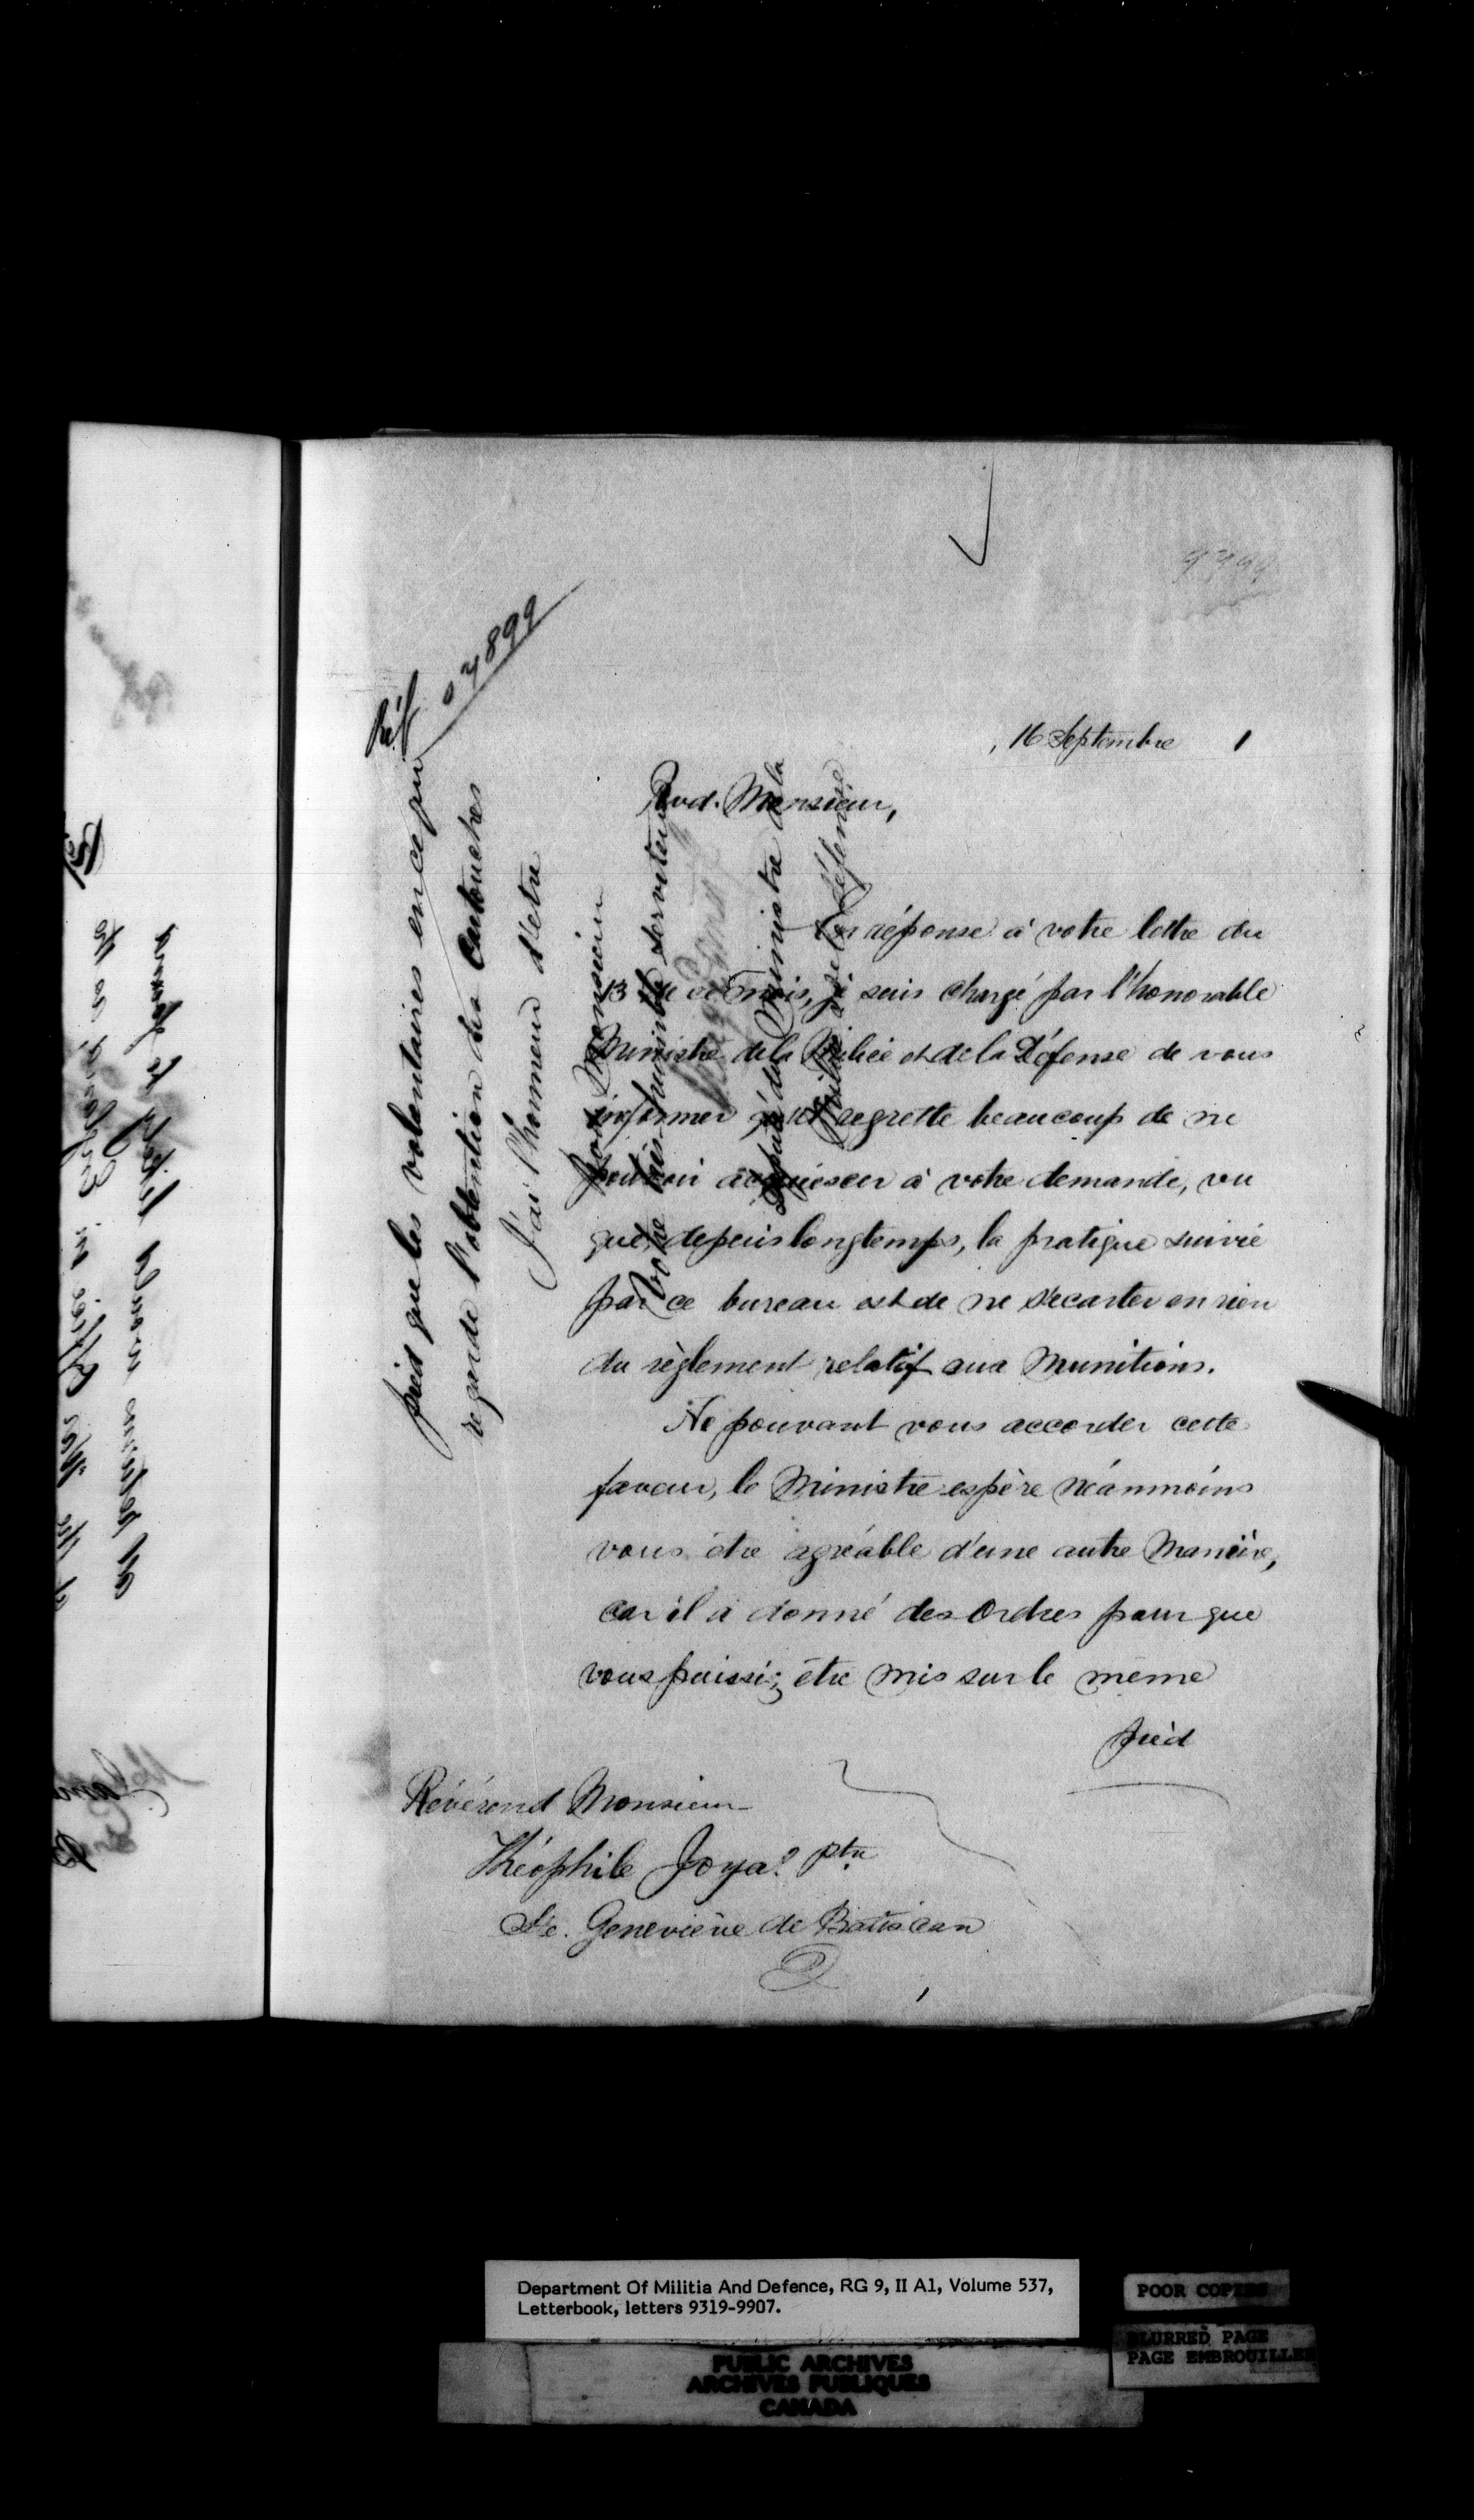 Réf 07899
, 16 Septembre 1
Revd. Monsieur,
En réponse à votre lettre du
13 de ce mois, je suis chargé par l'honorable
Ministre de la Milice et de la Défense de vous
informer qu'il regrette beaucoup de ne
pouvoir acquiescer à votre demande, vu
que, depuis longtemps, la pratique suivie
par ce bureau est de ne s'ecarter en rien
du règlement relatif aux Munitions.
Ne pouvant vous accorder cette
faveur, le Ministre espère néanmoins
vous être agréable d'une autre Manière,
car il a donné des Ordres pour que
vous puissiez être mis sur le même
pied
Révérend Monsieur
Théophile Joyal ptre
Ste. Geneviève de Batiscan
Q
pied que les volontaires en ce qui
regarde l'obtention des Cartouches
J'ai l'honneur d'etre
Monsieur
Votre très-humble serviteur
Député du Ministre de la
Milice et de la Défense
Department Of Militia And Defence, RG 9, II A1, Volume 537,
Letterbook, letters 9319-9907.
POOR COPIES
BLURRED PAGE
PAGE EMBROUILLEE
PUBLIC ARCHIVES
ARCHIVES PUBLIQUES
CANADA